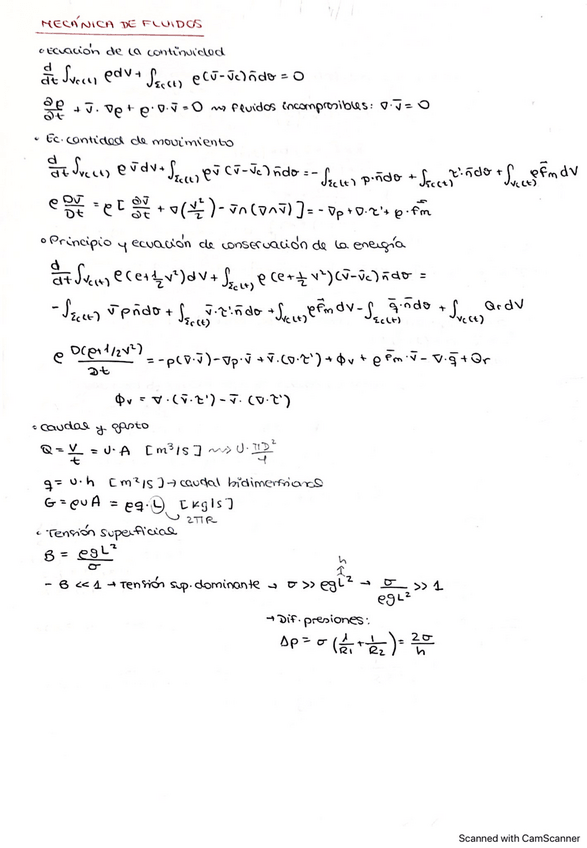 MECÁNICA DE FLUIDOS
∘ Ecuación de la continuidad
d/dt ∫Vc(t) ρdV + ∫Σc(t) ρ(v̄-v̄c)n̄dσ = 0
∂ρ/∂t + v̄·∇ρ + ρ·∇·v̄ = 0 ⇝ Fluidos incompresibles: ∇·v̄ = 0
• Ec. cantidad de movimiento
d/dt ∫Vc(t) ρv̄dV + ∫Σc(t) ρv̄(v̄-v̄c)n̄dσ = -∫Σc(t) p·n̄dσ + ∫Σc(t) τ'·n̄dσ + ∫Vc(t) ρf̄m dV
ρ Dv̄/Dt = ρ[∂v̄/∂t + ∇(v²/2) - v̄∧(∇∧v̄)] = -∇p + ∇·τ' + ρ·f̄m
∘ Principio y ecuación de conservación de la energía
d/dt ∫Vc(t) ρ(e+½v²)dV + ∫Σc(t) ρ(e+½v²)(v̄-v̄c)n̄dσ =
-∫Σc(t) v̄pn̄dσ + ∫Σc(t) v̄·τ'·n̄dσ + ∫Vc(t) ρf̄m dV - ∫Σc(t) q̄·n̄dσ + ∫Vc(t) Qr dV
ρ D(e+1/2v²)/Dt = -p(∇·v̄) - ∇p·v̄ + v̄·(∇·τ') + ϕv + ρf̄m·v̄ - ∇·q̄ + Qr
ϕv = ∇·(v̄·τ') - v̄·(∇·τ')
• Caudal y gasto
Q = V/t = U·A [m³/s] ⇝ U·πD²/4
q = U·h [m²/s] → caudal bidimensional
G = ρUA = ρq·L [kg/s]
2πR
• Tensión superficial
B = ρgL²/σ
h
- B << 1 → Tensión sup. dominante → σ >> ρgL² → σ/ρgL² >> 1
→ Dif. presiones:
Δp = σ(1/R1 + 1/R2) = 2σ/h
Scanned with CamScanner